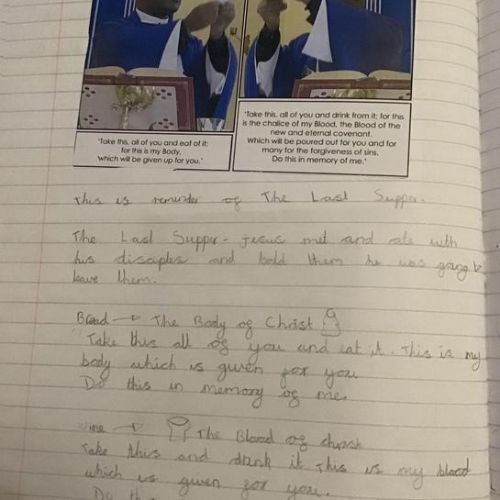 'Take this, all of you and eat of it;
for this is my Body,
which will be given up for you.'
'Take this, all of you and drink from it; for this
is the chalice of my Blood, the Blood of the
new and eternal covenant.
Which will be poured out for you and for
many for the forgiveness of sins.
Do this in memory of me.'
This is reminder of The Last Supper.
The Last Supper - Jesus met and ate with
his disciples and told them he was going to
leave them.
Bread → The Body of Christ
"Take this all of you and eat it. This is my
body which is given for you
Do this in memory of me.
Wine → The Blood of christ
Take this and drink it This is my blood
which is given for you.
Do this